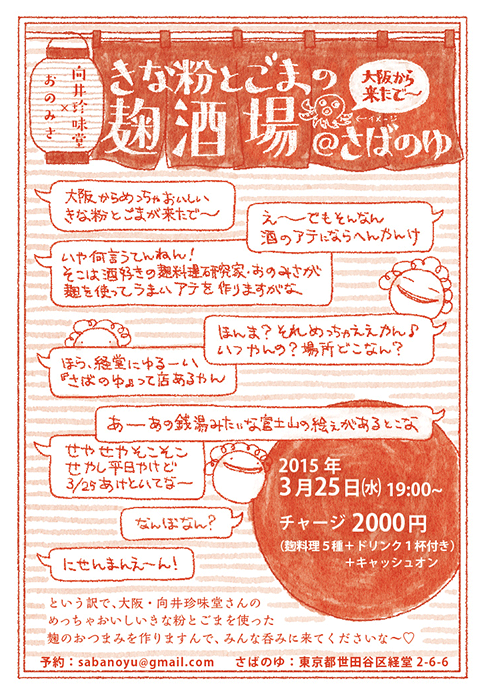 向井珍味堂
×
おのみさ
きな粉とごまの
麹酒場
@さばのゆ
大阪から
来たで〜
←イメージ
大阪からめっちゃおいしい
きな粉とごまが来たで〜
え〜〜でもそんなん
酒のアテにならへんやんけ
いや何言うてんねん!
そこは酒好きの麹料理研究家・おのみさが
麹を使ってうまいアテを作りますがな
ほんま?それめっちゃええやん♪
いつやんの?場所どこなん?
ほら、経堂にゆるーい
『さばのゆ』って店あるやん
あーーあの銭湯みたいな富士山の絵ぇがあるとこな
せやせやそこそこ
せやし平日やけど
3/25あけといてな〜
なんぼなん?
にせんまんえ〜ん!
2015年
3月25日(水) 19:00~
チャージ 2000円
(麹料理5種+ドリンク1杯付き)
+キャッシュオン
という訳で、大阪・向井珍味堂さんの
めっちゃおいしいきな粉とごまを使った
麹のおつまみを作りますんで、みんな呑みに来てくださいな〜♡
予約:sabanoyu@gmail.com さばのゆ:東京都世田谷区経堂 2-6-6